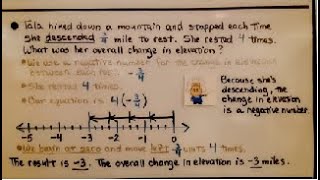 Tails hiked down a mountain and stopped each time
she descended 3/4 mile to rest. She rested 4 times.
What was her overall change in elevation?
We use a negative number for the change in elevation
between each rest - -3/4
She rested 4 times.
Our equation is 4(-3/4)
Because she's
descending, the
change in elevation
is a negative number.
-5 -4 -3 -2 -1 0
We begin at zero and move left 3/4 units 4 times.
The result is -3. The overall change in elevation is -3 miles.